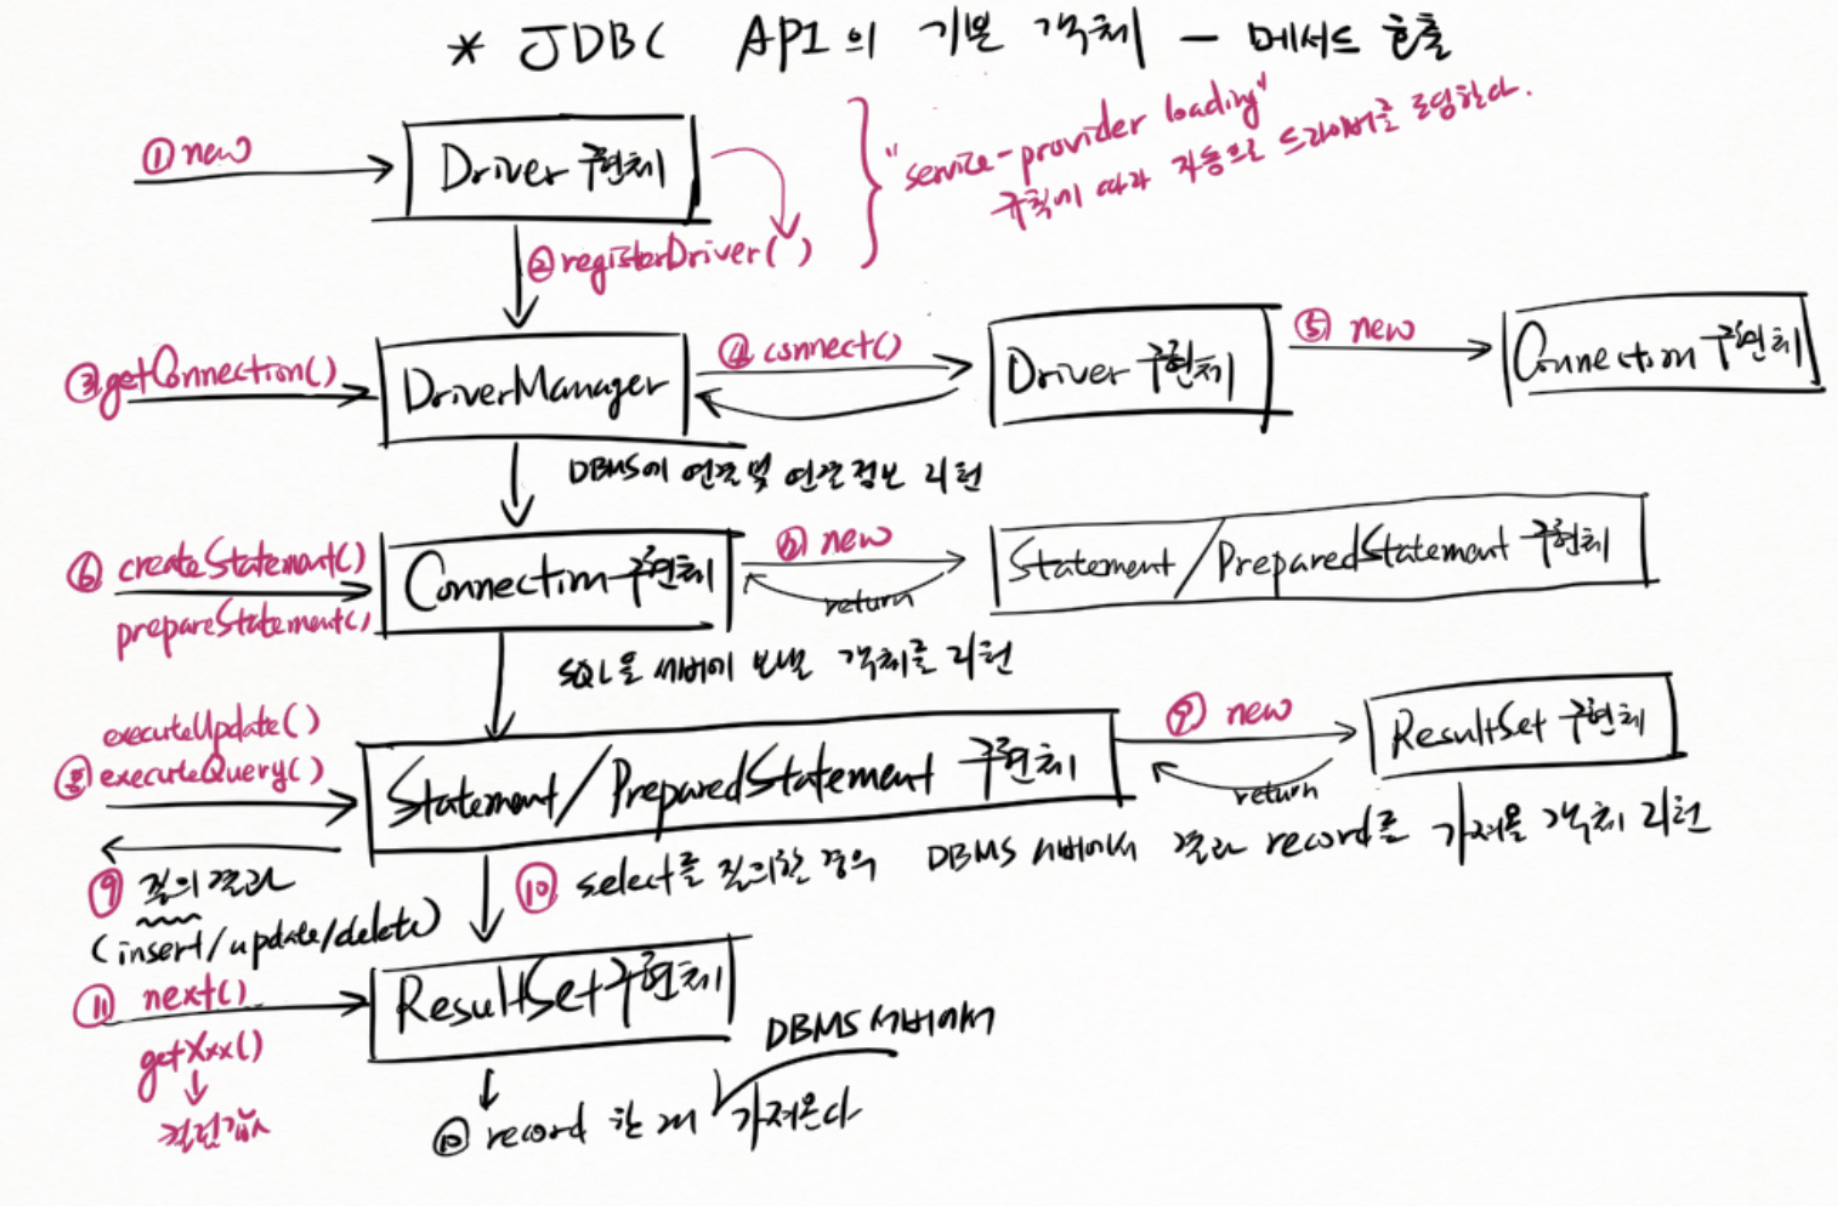 * JDBC API의 기본 객체 - 메서드 호출
① new
Driver 구현체
"service-provider loading"
규칙에 따라 자동으로 드라이버를 로딩한다.
② registerDriver( )
③ getConnection()
DriverManager
④ connect()
Driver 구현체
⑤ new
Connection 구현체
DBMS에 연결 및 연결정보 리턴
⑥ createStatement()
prepareStatement()
Connection 구현체
new
return
Statement/PreparedStatement 구현체
SQL을 서버에 보낼 객체를 리턴
executeUpdate()
⑧ executeQuery()
Statement/PreparedStatement 구현체
⑨ new
return
ResultSet 구현체
⑨ 질의결과
(insert/update/delete)
⑩ select를 질의한 경우 DBMS 서버에서 결과 record를 가져올 객체 리턴
⑪ next()
getXxx()
컬럼값
ResultSet 구현체
DBMS 서버에서
⑫ record 한 개 가져온다